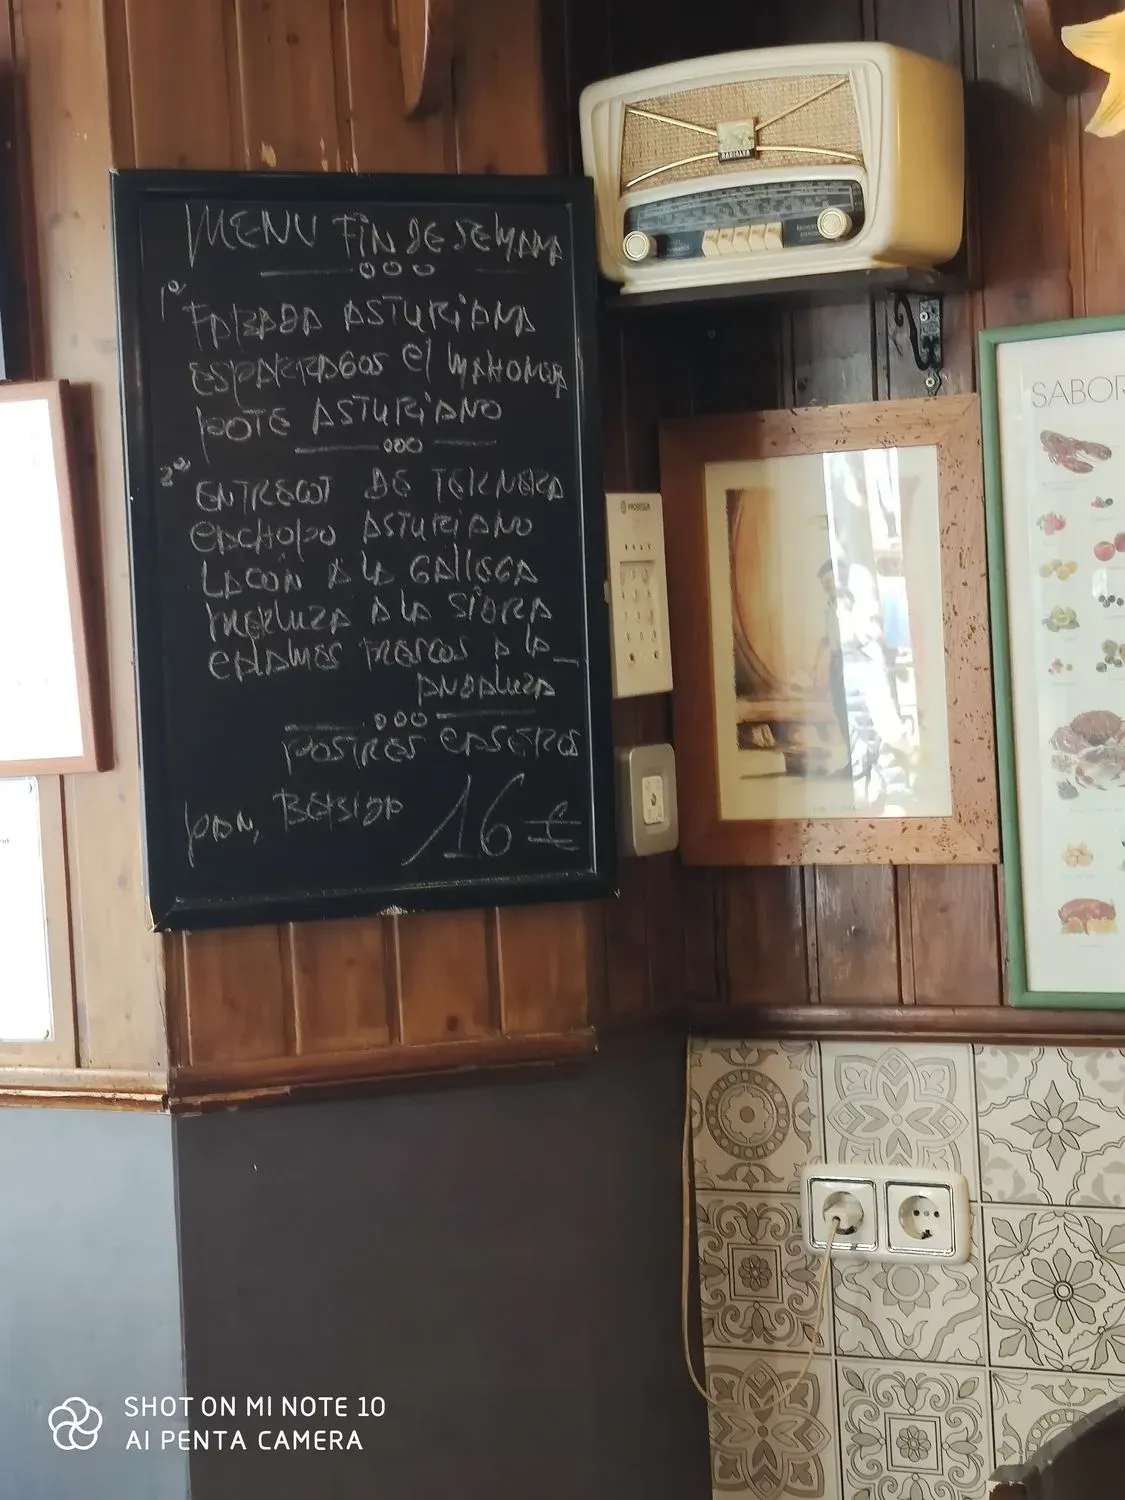 MENU FIN DE SEMANA
1º
FABADA ASTURIANA
ESPARRAGOS C/ MAHONESA
POTE ASTURIANO
2º
ENTRECOT DE TERNERA
CACHOPO ASTURIANO
LACON A LA GALLEGA
MERLUZA A LA SIDRA
CALAMES FRESCOS A LA
ANDALUZA
POSTRES CASEROS
PAN, BEBIDA 16 €
RADIALVA
PROSEGUR
SABOR
SHOT ON MI NOTE 10
AI PENTA CAMERA